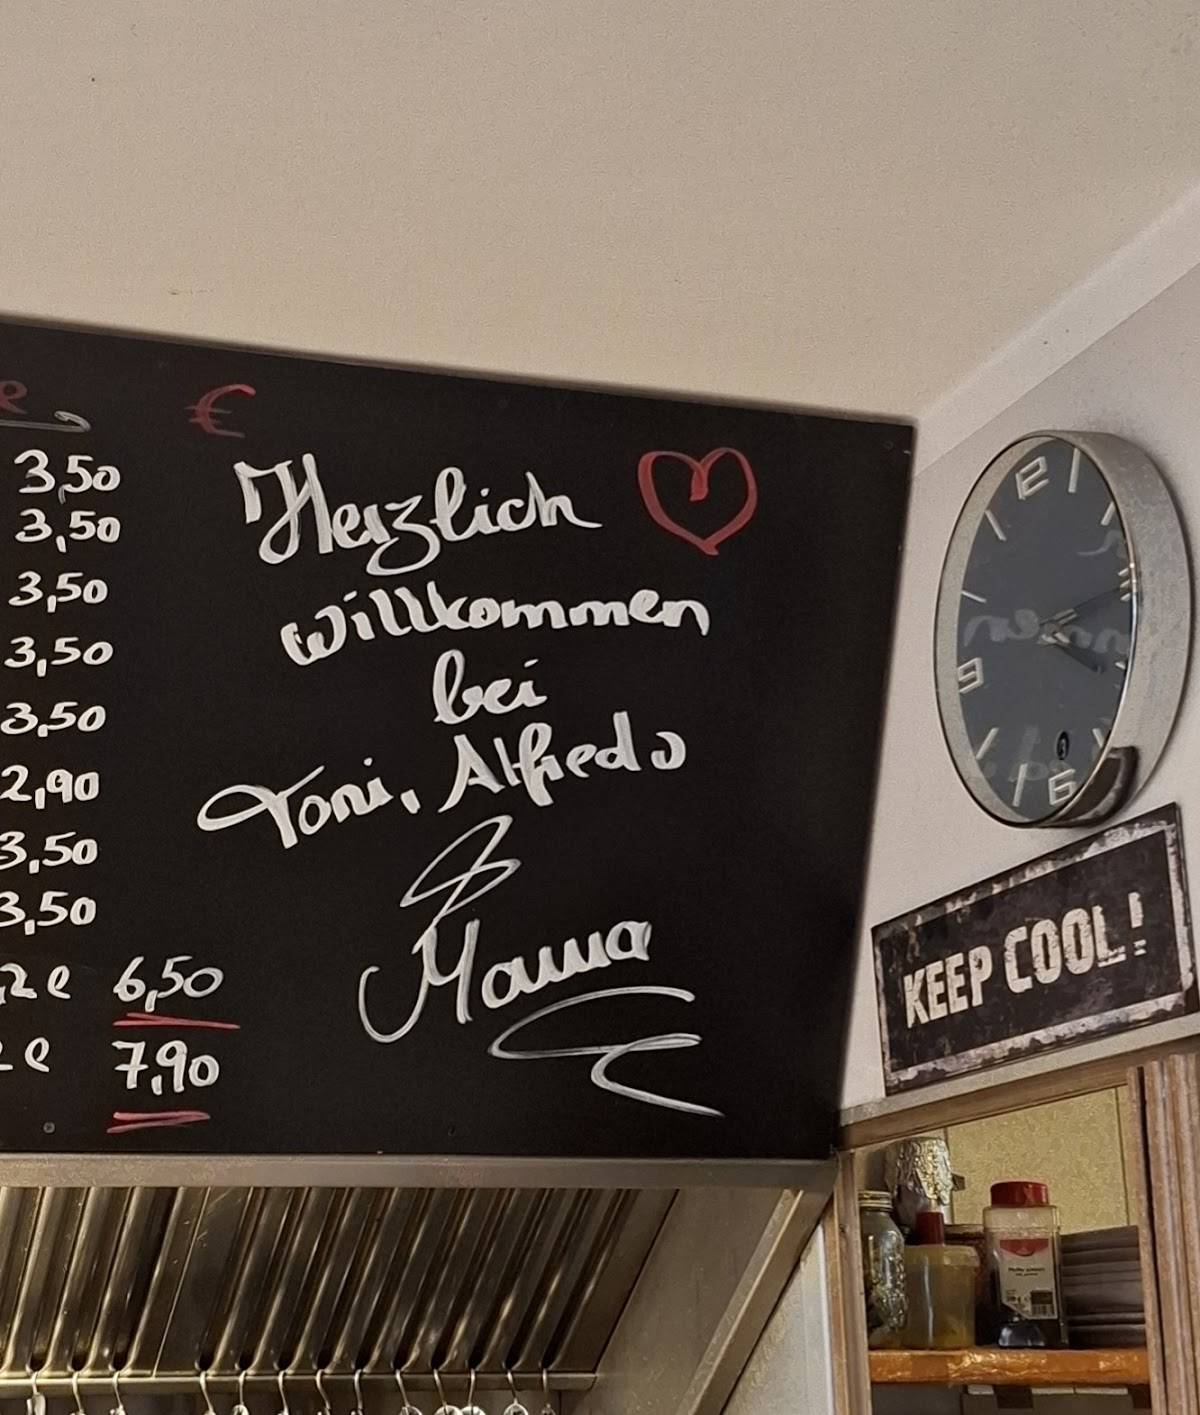 €
3,50
3,50
3,50
3,50
3,50
2,90
3,50
3,50
6,50
7,90
Herzlich
willkommen
bei
Toni, Alfredo
&
Mama
12
9
6
KEEP COOL!